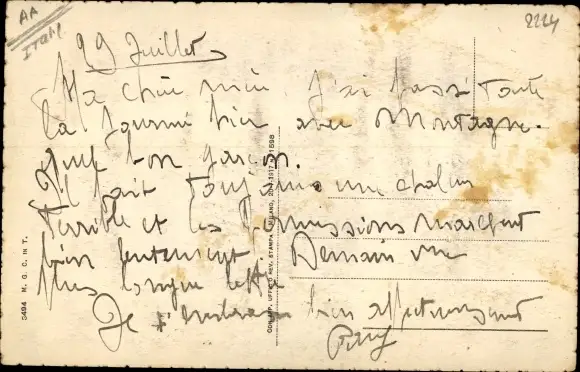 AA
ITALI
2224
29 Juillet
Ma chère mimi J'ai passé toute
la journée hier avec Montagne.
Quel bon garçon.
Il fait toujours une chaleur
terrible et les permissions marchent
bien lentement. Demain une
plus longue lettre
Je t'embrasse bien affectueusement
3494 M. G. C. IN T.
CON APP. UFFICIO REV. STAMPA MILANO, 1917 1598